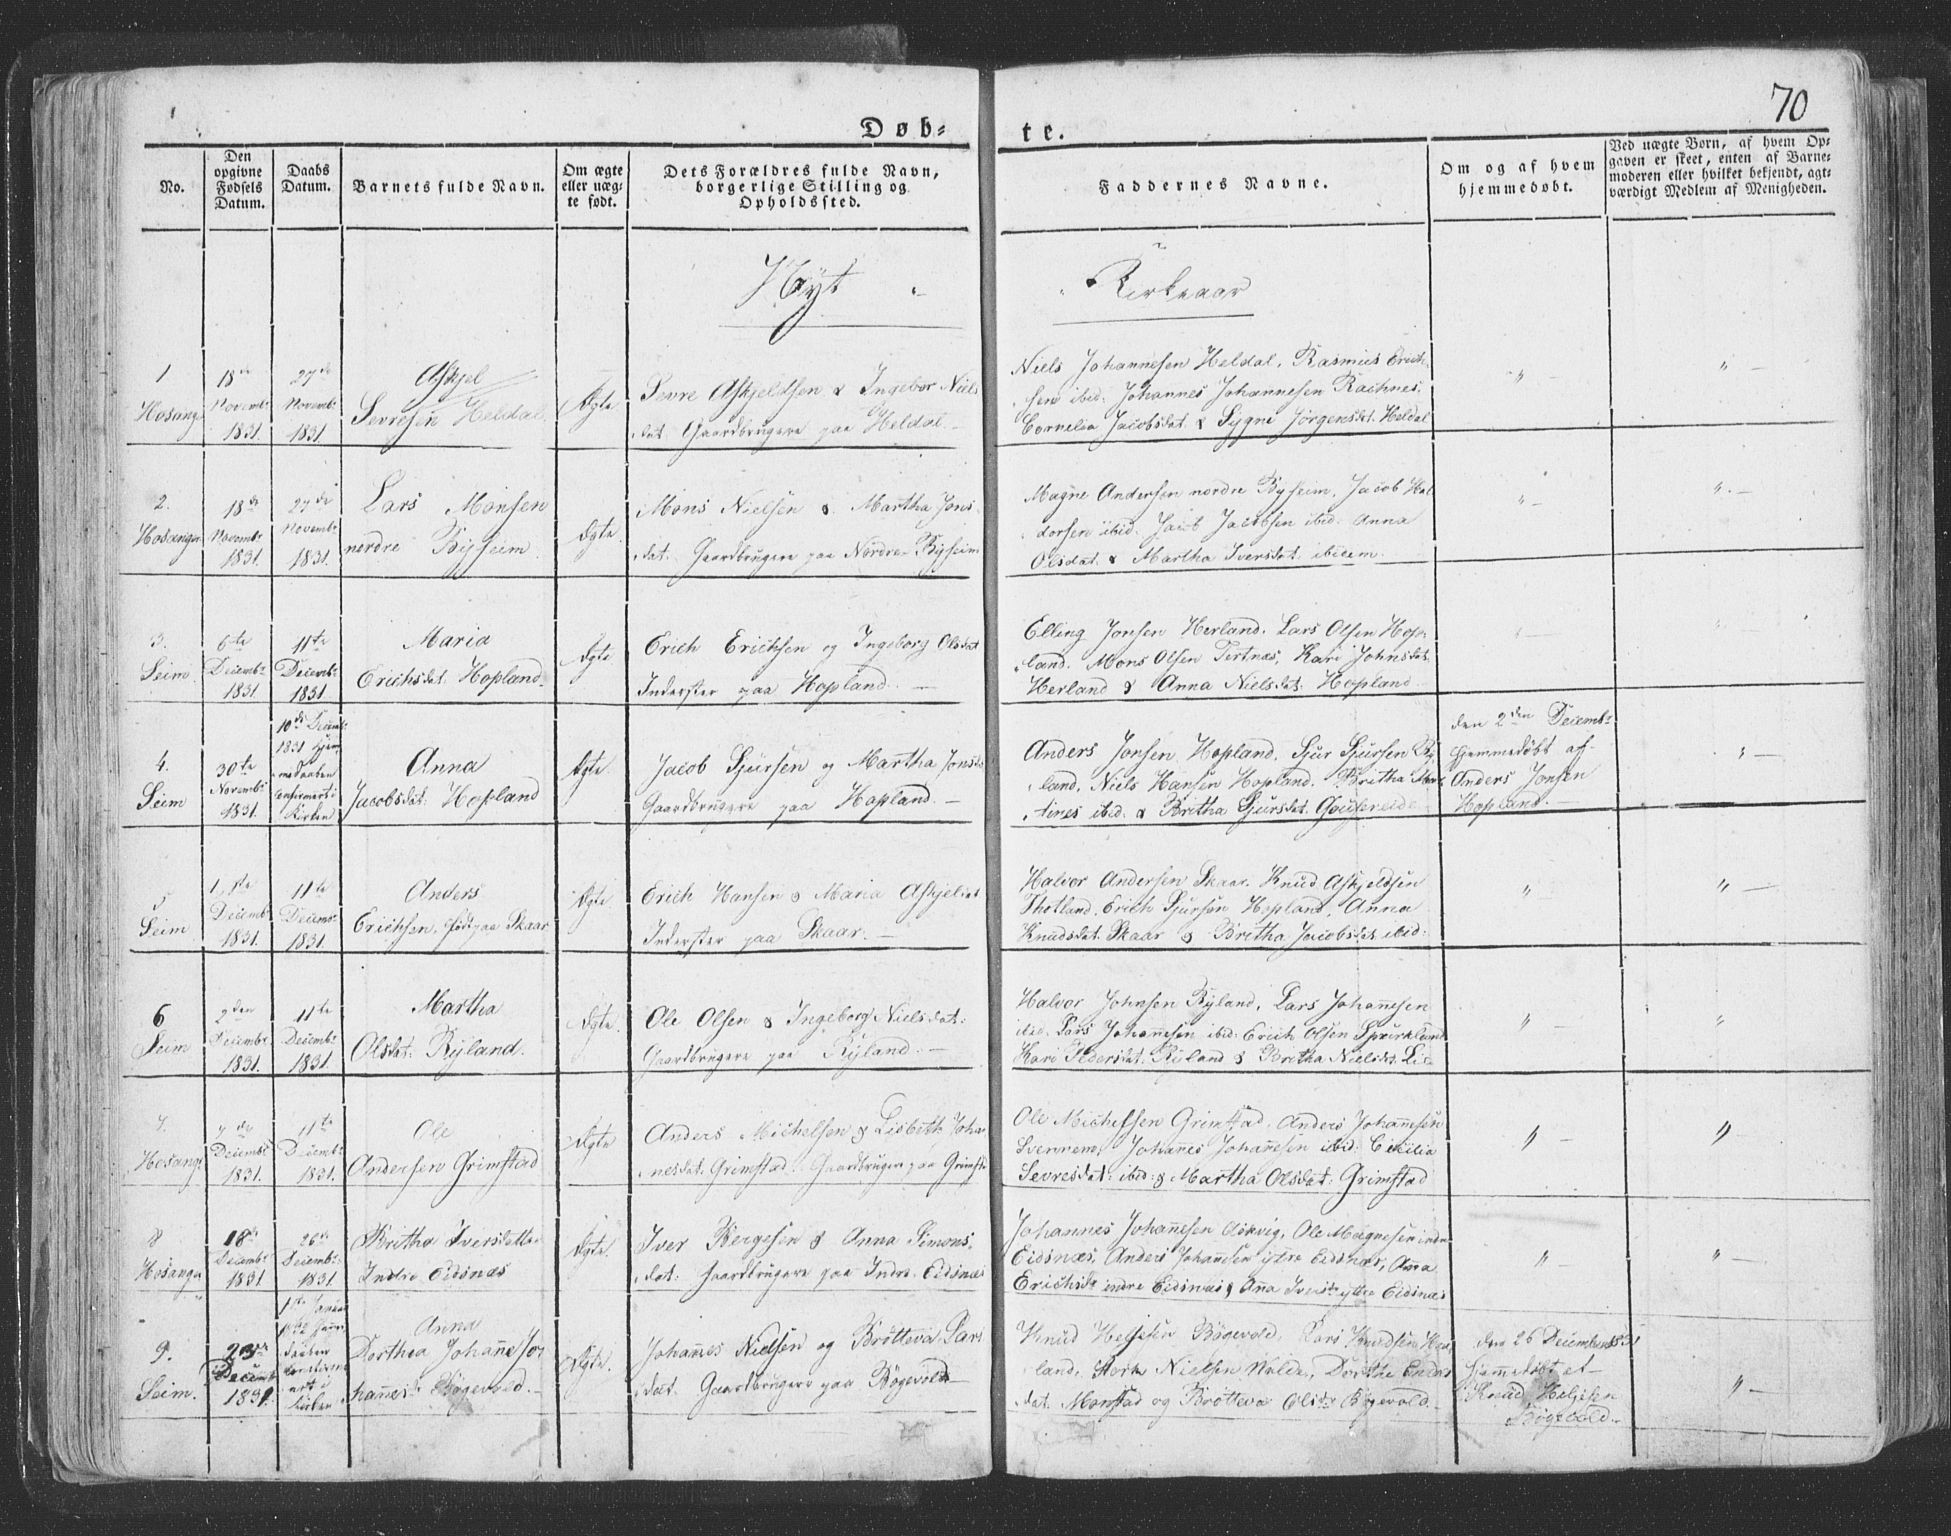 70
Døb- te.
No.
Den opgivne Fødsels Datum.
Daabs Datum.
Barnets fulde Navn.
Om ægte eller uæg- te født.
Dets Forældres fulde Navn, borgerlige Stilling og Opholdssted.
Faddernes Navne.
Om og af hvem hjemmedøbt.
Ved uægte Børn, af hvem Op- gaven er skeet, enten af Barne- moderen eller hvilket bekjendt, agt- værdigt Medlem af Menigheden.
Nyt Kirkeaar
1 Hosanger
18de Novembr 1831
27de Novembr 1831.
Askjel Sevresen Heldal
Ægte
Sevre Askjeldsen & Ingebor Niels
dat. Gaardbrugere paa Heldal.
Niels Johannesen Heldal, Rasmus Erich-
sen ibid: Johannes Johannesen Raknes.
Cornelia Jacobsdat. & Sygni Jørgensdat. Heldal
" —
" —
2. Hosanger
18de Novembr 1831.
27de Novembr 1831.
Lars Monsen nordre Byseim
Ægte
Mons Nielsen & Martha Jons-
dat. Gaardbrugere paa Nordre Byseim
Magne Andersen nordre Byseim, Jacob Hal
dorsen ibid. Jacob Jacobsen ibid. Anna
Olsdat. & Martha Iversdat. ibidem.
" —
" —
3. Seim
6te Decembr 1831.
11te Decembr 1831.
Maria Erichsdat. Hopland
Ægte
Erich Erichsen og Ingeborg Olsdat
Inderster paa Hopland. —
Elling Jonsen Herland. Lars Olsen Hop-
land. Mons Olsen Tertnæs, Kari Johnsdat.
Herland & Anna Nielsdat. Hopland
" —
4. Seim
30te Novembr 1831.
10de Decembr 1831 Hjem- medaaben Confirmert i Kirken
Anna Jacobsdat. Hopland
Ægte
Jacob Sjursen og Martha Jonsd.
Gaardbrugere paa Hopland. —
Anders Jonsen Hopland, Sjur Sjursen Ry
land, Niels Hansen Hopland. Britha Mar
tines ibid: & Britha Sjursdat.
den 2den Decembr
Hjemmedøbt af
Anders Jonsen
Hopland. —
" —
5 Seim
Decembr 1831.
11te Decembr 1831.
Anders Erichsen, født paa Skaar
Ægte
Erich Hansen & Maria Askjelsdat
Inderster paa Skaar. —
Halvor Andersen Skaar. Knud Askjeldsen
Thotland, Erich Sjursen Hopland, Anna
Knudsdat. Skaar & Britha Jacobsdat. ibid:
" —
" —
6 Seim
2den Decembr 1831.
11te Decembr 1831.
Martha Olsdat. Ryland.
Ægte.
Ole Olsen & Ingeborg Nielsdat:
Gaardbrugere paa Ryland. —
Halvor Johnsen Ryland, Lars Johannesen
ibid. Lars Johannesen ibid: Erich Olsen Spurkland
Kari Pedersdat. Ryland & Britha Nielsdat. Lie
" —
"
7. Hosanger
Decembr 1831.
11te Decembr 1831.
Ole Andersen Grimstad
Ægte
Anders Michelsen & Lisbeth Joha-
nesdat. Grimstad Gaardbrugere paa Grimst
Ole Michelsen Grimstad, Anders Johannesen
Johannes Johannesen ibid: Cicilia
Sevresdat: ibid: & Martha Olsdat: Grimstad
" —
" —
8 Hosanger
18de Decembr 1831
26de Decembr 1831.
Britha Iversdatter Indre Eidsnæs
Ægte
Iver Børgesen & Anna Simons-
dat: Gaardbrugere paa Indre Eidsnæs
Johannes Johannesen Askvig, Ole Magnesen indre
Eidsnæs, Anders Johannesen ytre Eidsnæs, Anna
Erichsdr indre Eidsnæs & Anna Iversdr ytre Eidsnæs
" —
" —
9. Seim.
23de Decembr 1831.
Anna Dorthea Johanne Jo- hannesdr Bøgevold. —
Ægte.
Johannes Nielsen og Brøtteva Lars
dat. Gaardbrugere paa Bøgevold —
Knud Helgesen Bøgevold, Lars Knudsen
land, Nielsen Dorthe
dat. Monstad og Brøtteva Olsdr Bøgevold.
den 26 Decembr 1831
Hjemmedøbt af
Knud Helgesen
Bøgevold —
" —